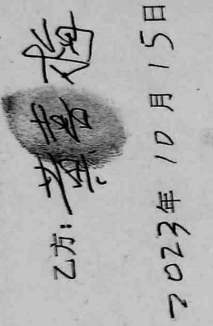 乙方:
2023年10月15日